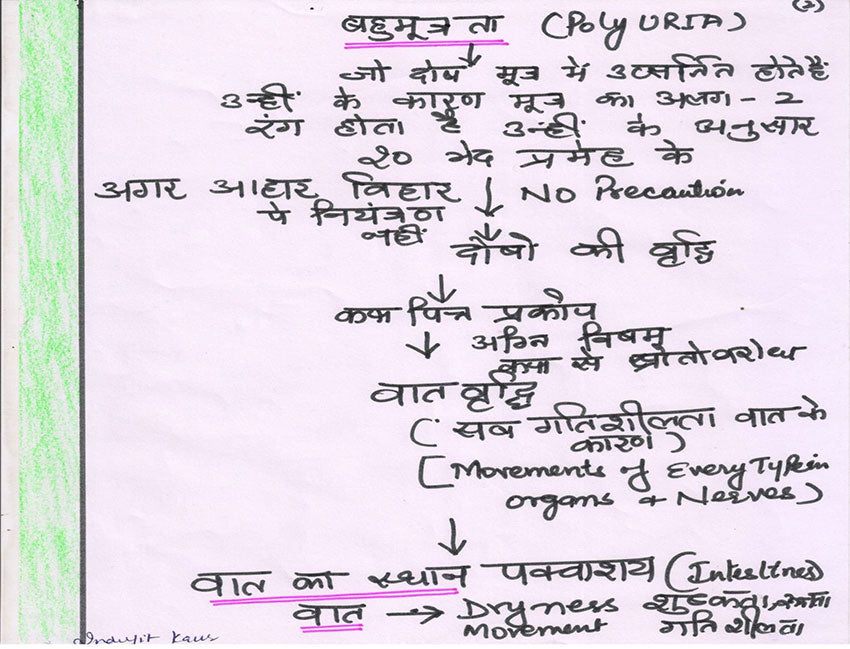 (2)
बहुमूत्रता (Poly URIA)
जो दोष मूत्र में उत्सर्जित होते हैं
उन्हीं के कारण मूत्र का अलग-2
रंग होता है उन्हीं के अनुसार
२० भेद प्रमेह के
अगर आहार विहार ↓ NO Precaution
पे नियंत्रण
नहीं
दौषो की वृद्धि
कफ पित्त प्रकोप
अग्नि विषम
कफ से स्रोतोवरोध
वात वृद्धि
(सब गतिशीलता वात के
कारण)
[Movements of Every Type in
organs & Nerves)
वात का स्थान पक्वाशय (Intestines)
वात → Dryness शुष्कता,
Movement गतिशीलता